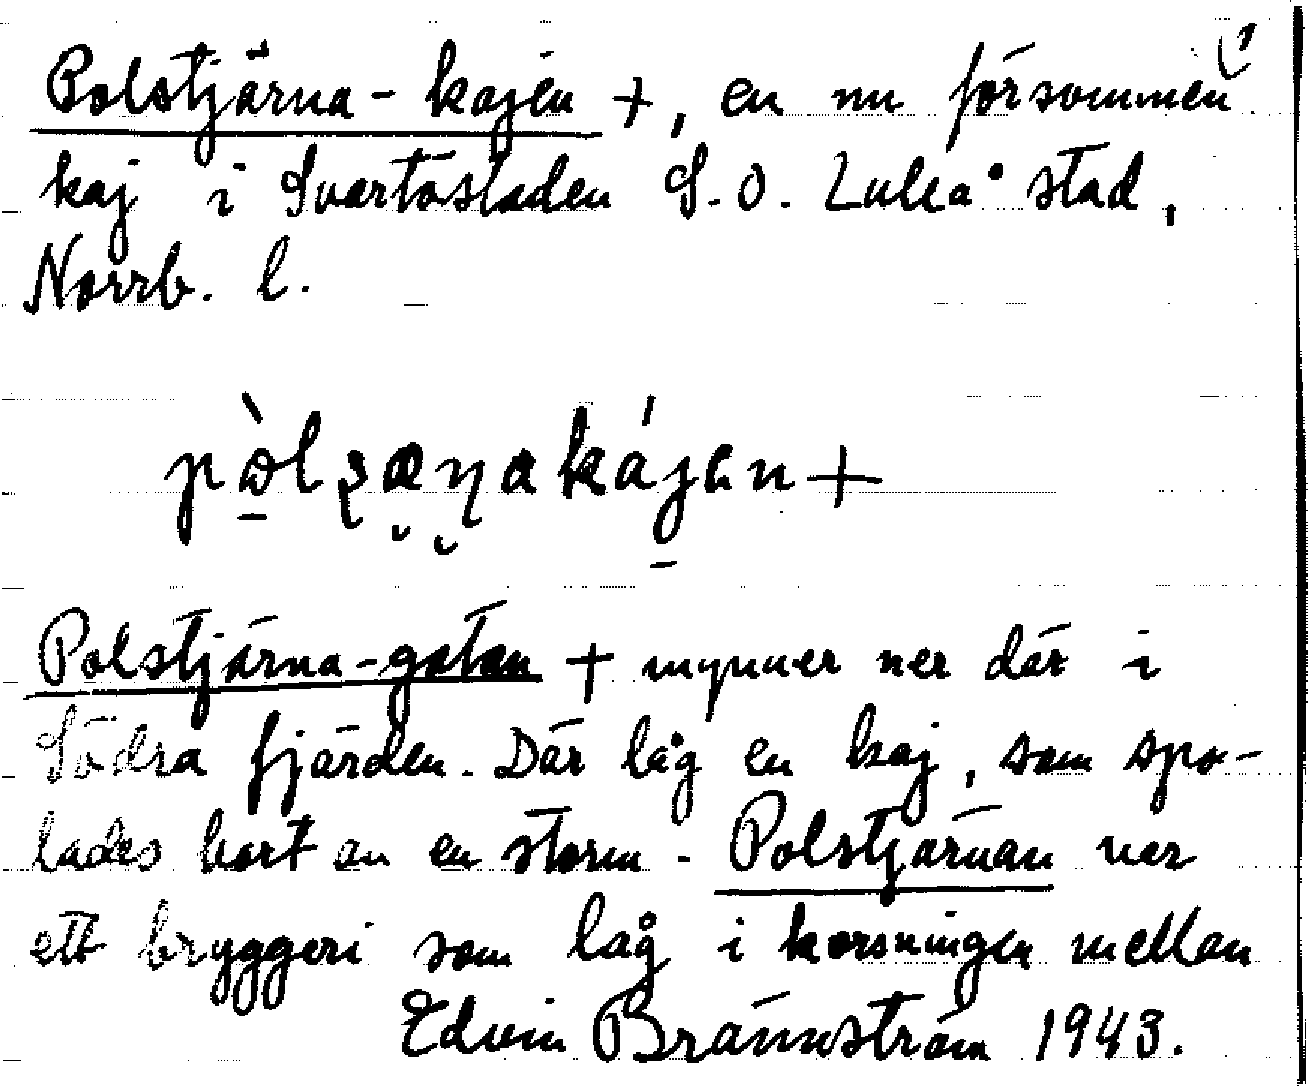 Polstjärna-kajen +, en nu försommen 1)
kaj i Svartöstaden S.O. Luleå stad,
Norrb. l.
Polstjärna-gatan + mynner ner där i
Södra fjärden. Där låg en kaj, som spo-
lades bort av en storm. Polstjärnan var
ett bryggeri som låg i korsningen mellan
Edvin Brännström 1943.